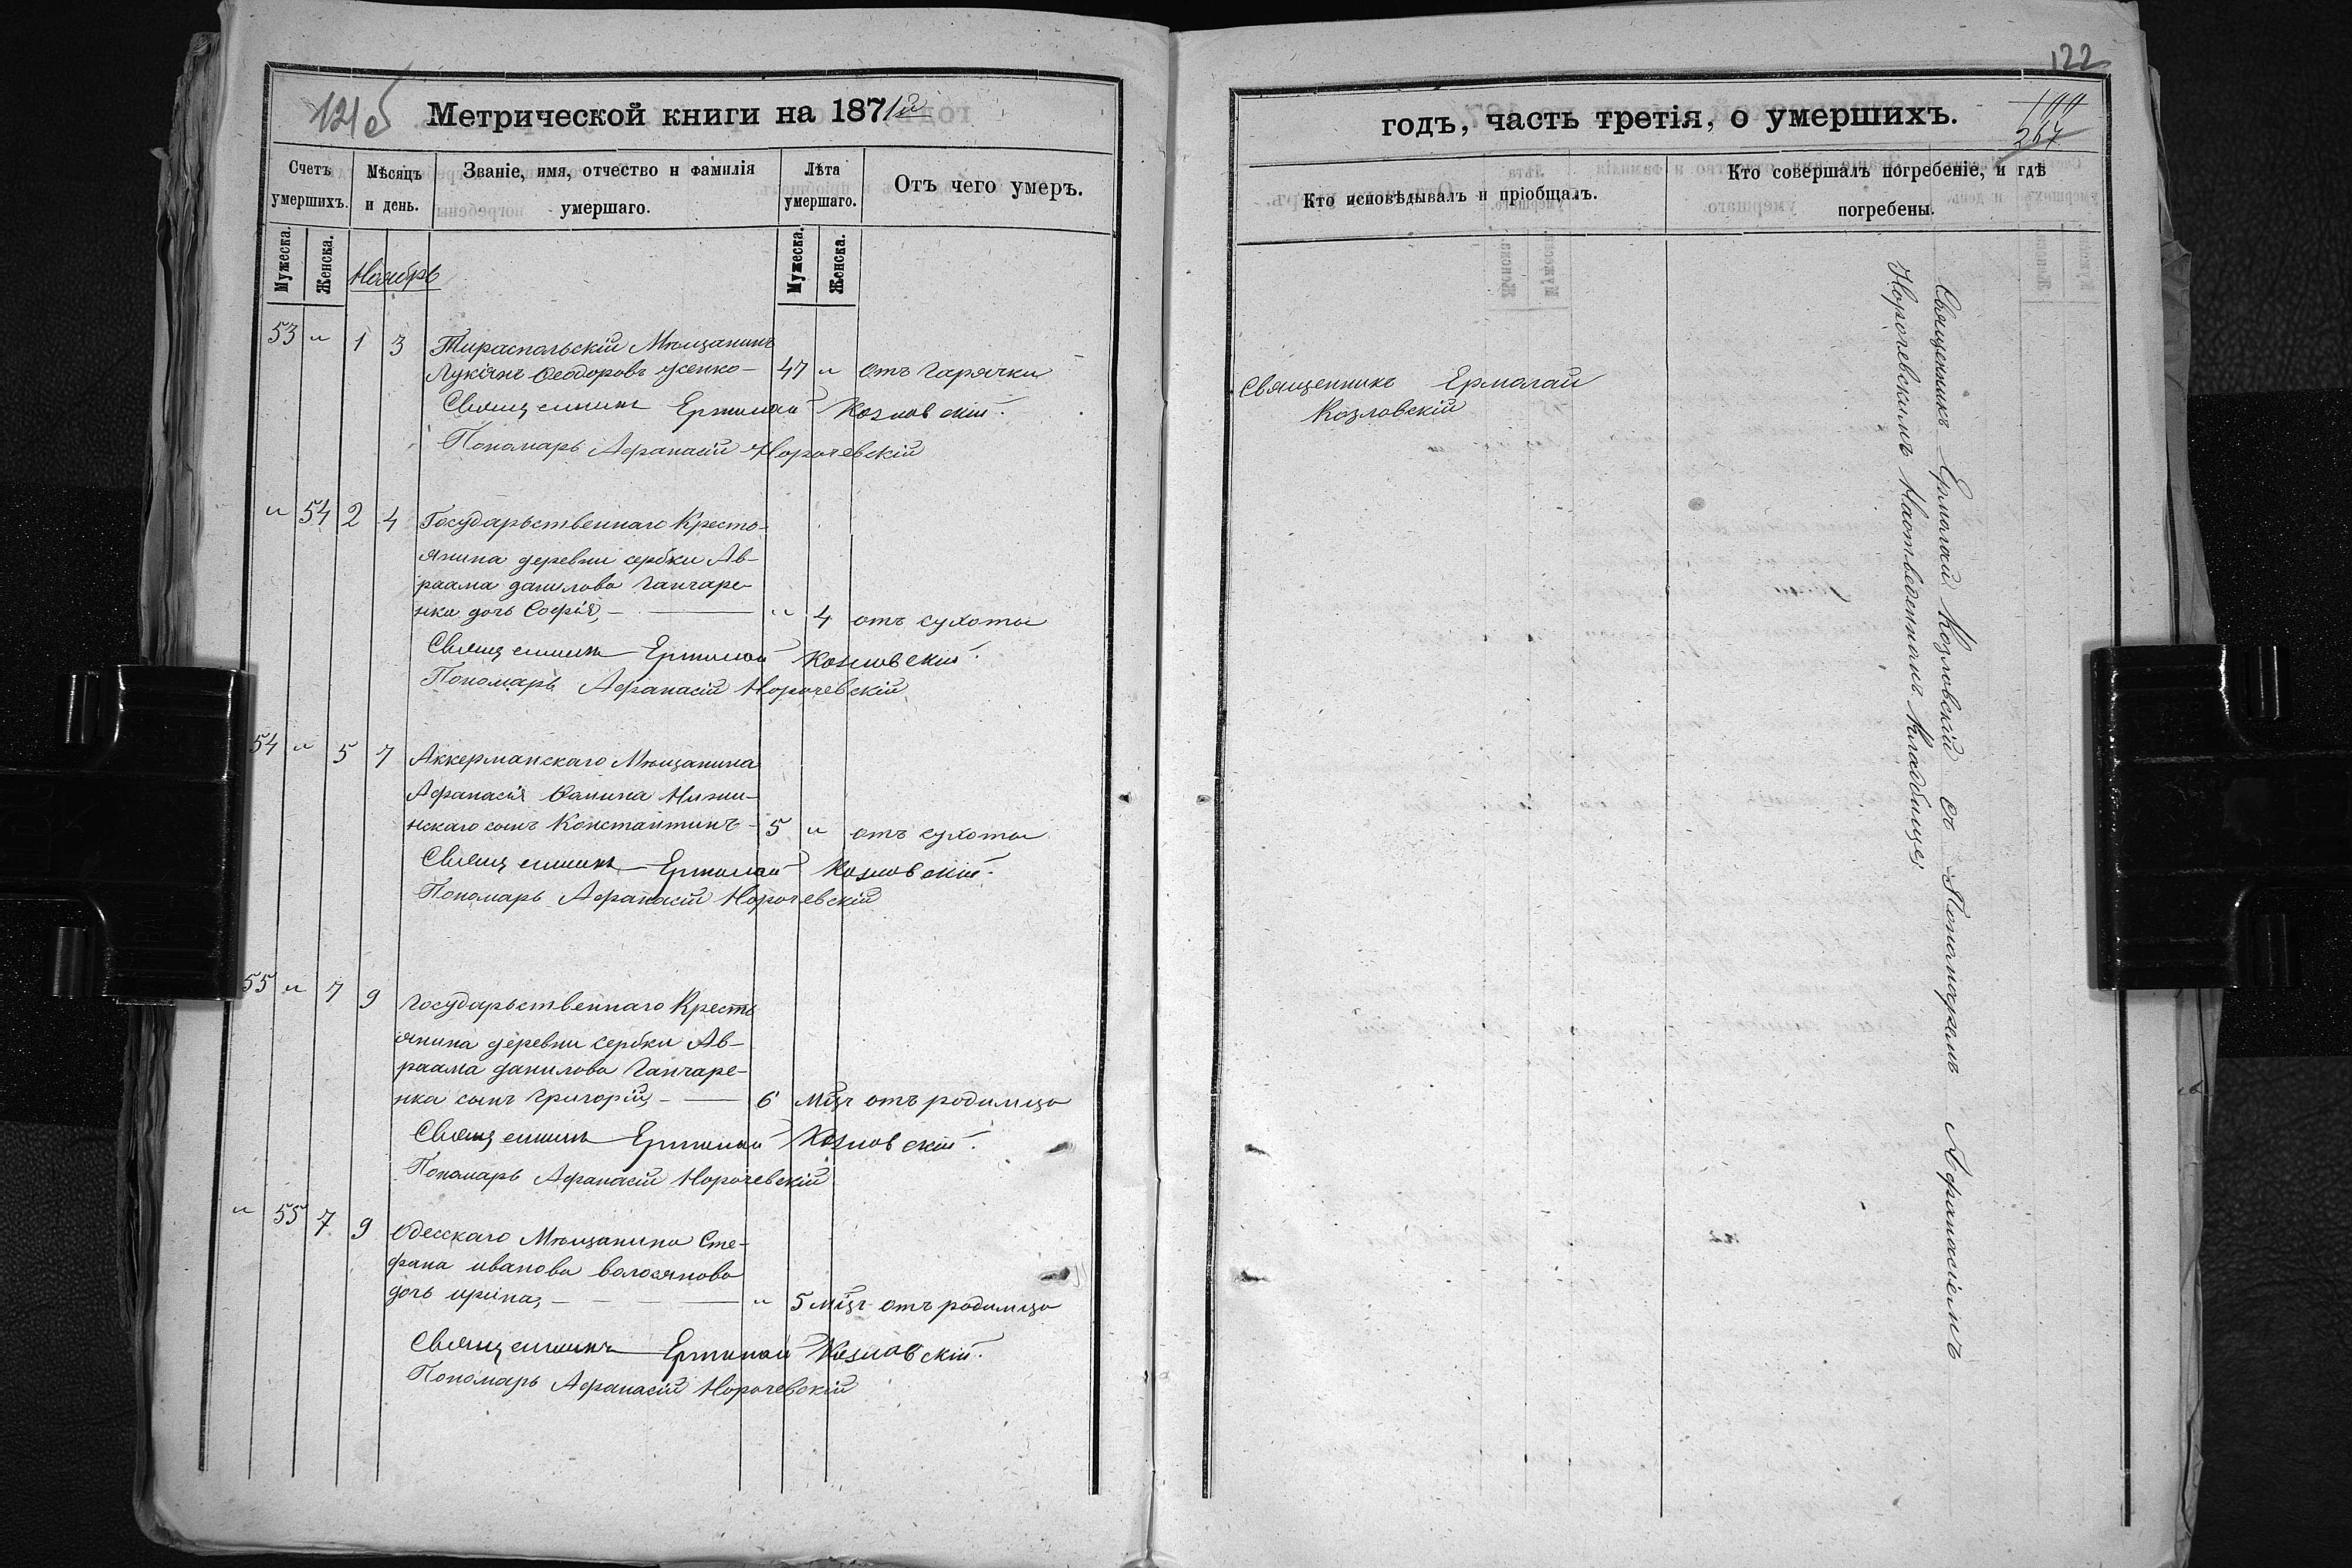 121 б
Метрической книги на 1871й
Счетъ умершихъ.
Мѣсяцъ и день.
Званіе, имя, отчество и фамилія умершаго.
Лѣта умершаго.
Отъ чего умеръ.
Мужеска.
Женска.
Мужеска.
Женска.
Ноябрь
53 " 1 3 Тираспольскій Мѣщанинъ
Лукіянъ Феодоровъ Усенко - 47 " отъ горячки
Священникъ Ермолай Козловскій.
Пономарь Афанасій Норочевскій
" 54 2 4 Государьственнаго Кресть-
янина деревни сербки Ав-
раама данилова Ганчаре-
нка дочь Софія, - " 4 отъ сухоты
Священникъ Ермолай Козловскій.
Пономарь Афанасій Норочевскій
54 " 5 7 Аккерманскаго Мѣщанина
Афанасія
нскаго сынъ Константинъ - 5 " отъ сухоты
Священникъ Ермолай Козловскій.
Пономарь Афанасій Норочевскій
55 " 7 9 государьственнаго Кресть
янина деревни сербки Ав-
раама данилова Ганчаре-
нка сынъ Григорій, - 6 мѣц отъ родимца
Священникъ Ермолай Козловскій.
Пономарь Афанасій Норочевскій
" 55 7 9 Одесскаго Мѣщанина Сте-
фана иванова волосянова
дочь ирина, - " 5 мѣц отъ родимца
Священникъ Ермолай Козловскій.
Пономарь Афанасій Норочевскій
122
годъ, часть третія, о умершихъ.
267
Кто исповѣдывалъ и пріобщалъ.
Кто совершалъ погребеніе, и гдѣ погребены.
Священникъ Ермолай
Козловскій
Священникъ Ермолай Козловскій съ Пономаремъ Афанасіемъ
Норочевскимъ Наотведенномъ Кладбище;